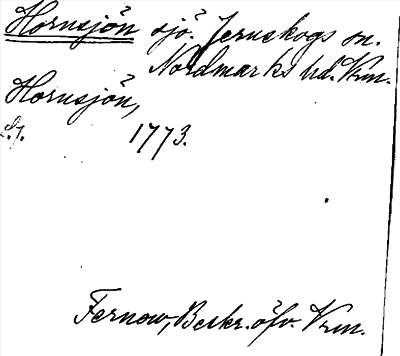 Hornsjön sjö. Jernskogs sn.
Nordmarks hd. Vrm.
Hornsjön,
1773.
Fernow, Beskr. öfv. Vrm.